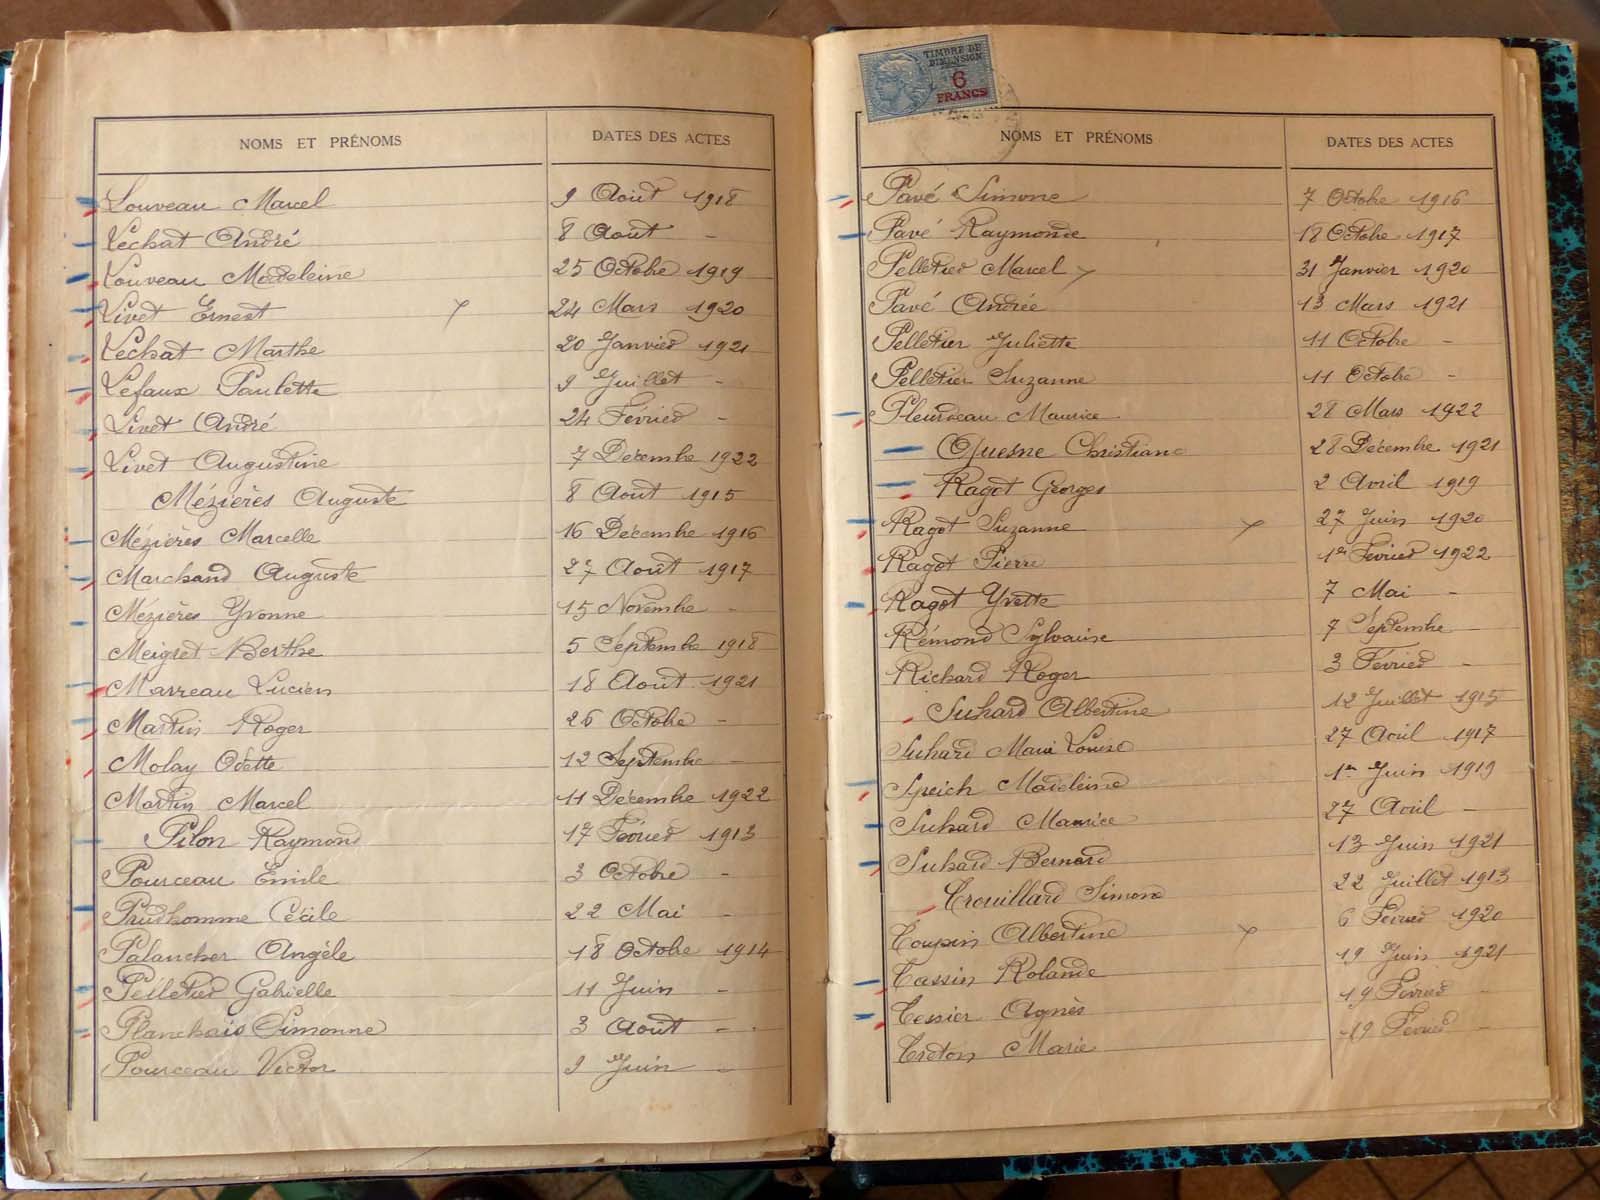 NOMS ET PRÉNOMS DATES DES ACTES
Louveau Marcel 9 Août 1918
Léchat André 8 Août -
Louveau Madeleine 25 Octobre 1919
Livet Ernest 24 Mars 1920
Léchat Marthe 20 Janvier 1921
Lefaux Paulette 9 Juillet -
Livet André 24 Février -
Livet Augustine 7 Décembre 1922
Mézières Auguste 8 Août 1915
Mézières Marcelle 16 Décembre 1916
Marchand Auguste 27 Août 1917
Mézières Yvonne 15 Novembre -
Meigret Berthe 5 Septembre 1918
Marreau Lucien 18 Août 1921
Martin Roger 26 Octobre -
Molay Odette 12 Septembre -
Martin Marcel 11 Décembre 1922
Pilon Raymond 17 Février 1913
Pourceau Emile 3 Octobre -
Prudhomme Cécile 22 Mai -
Palancher Angèle 18 Octobre 1914
Pelletier Gabrielle 11 Juin -
Planchais Simonne 3 Août -
Pourceau Victor 9 Juin -
TIMBRE DE
DIMENSION
6
FRANCS
NOMS ET PRÉNOMS DATES DES ACTES
Pavé Simone 7 Octobre 1916
Pavé Raymonde 18 Octobre 1917
Pelletier Marcel 31 Janvier 1920
Pavé Andrée 13 Mars 1921
Pelletier Juliette 11 Octobre -
Pelletier Suzanne 11 Octobre -
Pleurdeau Maurice 28 Mars 1922
Quesne Christiane 28 Décembre 1921
Ragot Georges 2 Avril 1919
Ragot Suzanne 27 Juin 1920
Ragot Pierre 1er Février 1922
Ragot Yvette 7 Mai -
Rémond Sylvaise 7 Septembre -
Richard Roger 3 Février -
Suhard Albertine 12 Juillet 1915
Suhard Marie Louise 27 Avril 1917
Speich Madeleine 1er Juin 1919
Suhard Maurice 27 Avril -
Suhard Bernard 13 Juin 1921
Trouillard Simone 22 Juillet 1913
Toupin Albertine 6 Février 1920
Tassin Rolande 19 Juin 1921
Tessier Agnès 19 Février -
Treton Marie 19 Février -